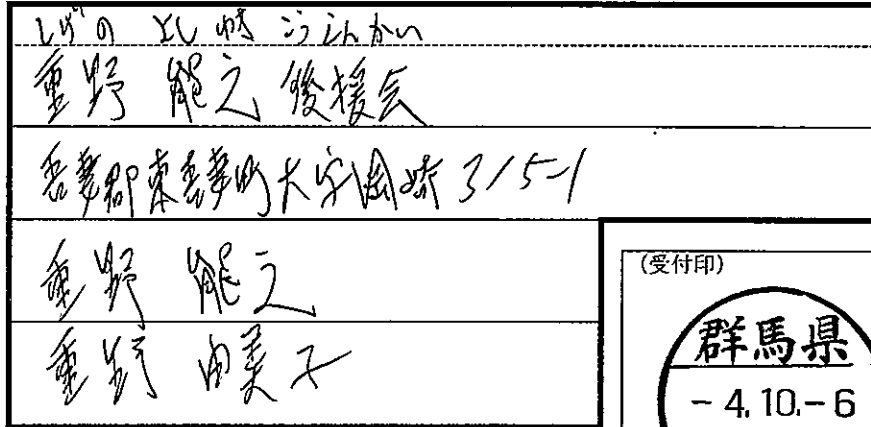 しげの よしゆき こうえんかい
重野 能之 後援会
吾妻郡東吾妻町大字岡崎315-1
重野 能之
重野 由美子
(受付印)
群馬県
-4.10.-6